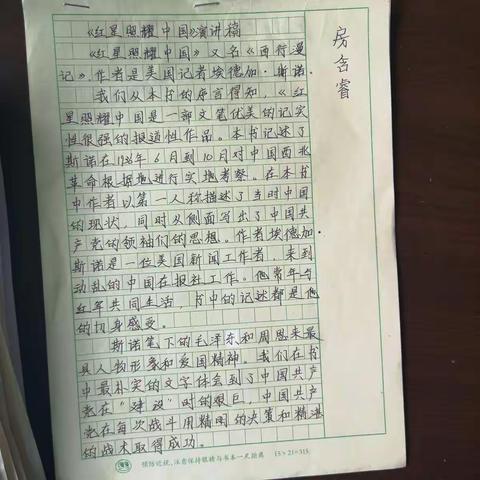 《红星照耀中国》演讲稿
《红星照耀中国》又名《西行漫
记》,作者是美国记者埃德加·斯诺。
我们从本书的序言得知,《红
星照耀中国是一部文笔优美的记实
性很强的报道性作品。本书记述了
斯诺在1936年6月到10月对中国西北
革命根据地进行实地考察。在本书
中作者以第一人称描述了当时中国
的现状,同时从侧面写出了中国共
产党的领袖们的思想。作者埃德加·
斯诺是一位美国新闻工作者,来到
动乱的中国在报社工作。他常年与
红军共同生活,书中的记述都是他
的切身感受。
斯诺笔下的毛泽东和周恩来最
具人物形象和爱国精神。我们在书
中最朴实的文字体会到了中国共产
党在"建设"时的艰巨,中国共产
党在每次战斗用精明的决策和精湛
的战术取得成功。
房含睿
预防近视,注意保持眼睛与书本一尺距离
15×21=315